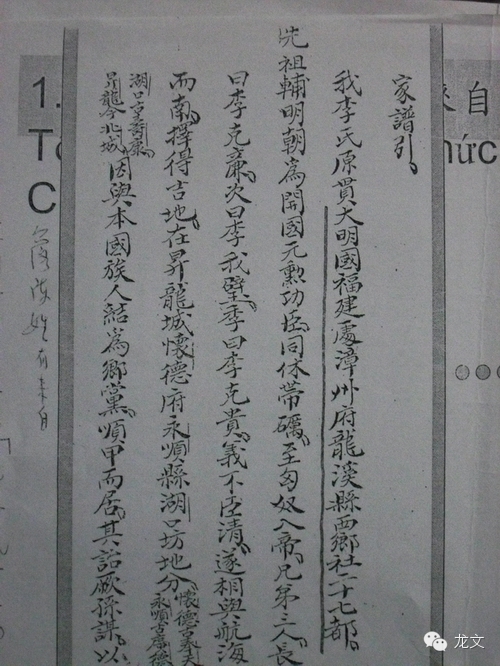 家譜引
我李氏原貫大明國福建處漳州府龍溪縣西鄉社二十七都
先祖輔明朝為開國元勳功臣同休帶礪至匈奴入帝兄弟三人長
曰李克廉次曰李我璧季曰李克貴義不臣清遂相與航海
而南擇得吉地在昇龍城懷德府永順縣湖口坊地分懷德古義天永順古廣德
湖口古壽康昇龍今北城因與本國族人結為鄉黨順甲而居其詒厥孫謀以
有来自
1.
T
C
來自
hức
龙文